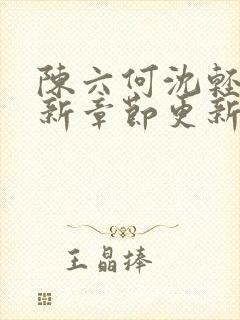 陳六何沈輕
新章節更新
王晶捧